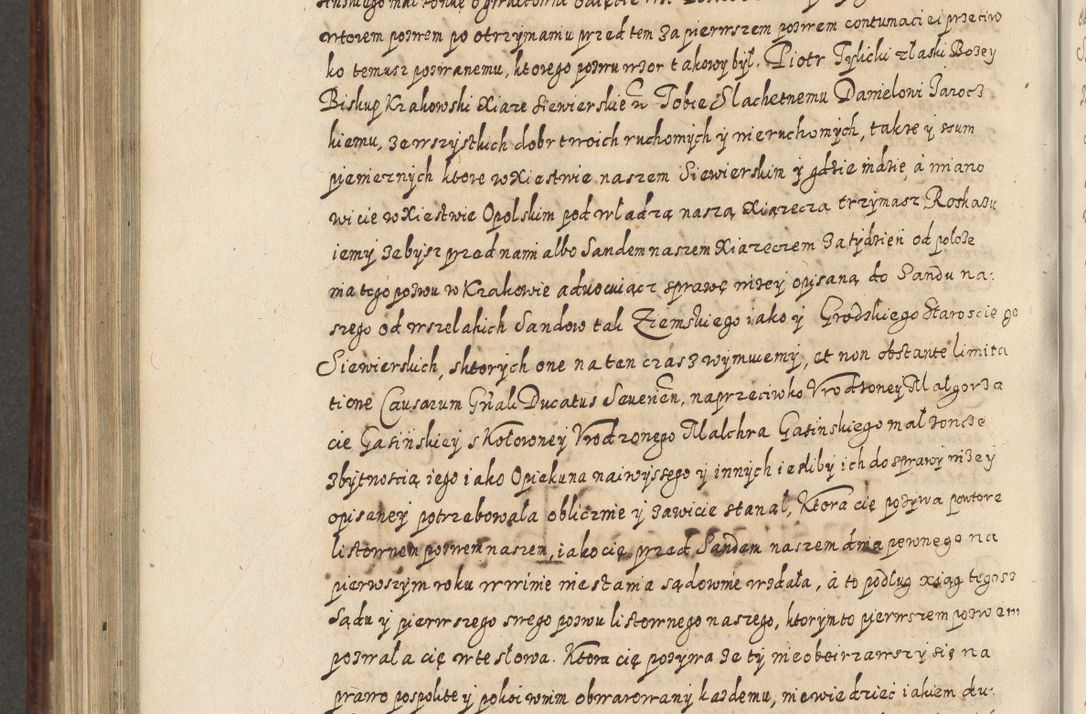 wtorem pozwem po otrzymaniu przed tem za pierwszem pozwem contumaciei przeciw
ko temusz pozwanemu, ktorego pozwu wzor takowy był. Piotr Tylicki z łaski Bozey
Biskup Krakowski Xiąze Siewierskie Tobie Slachetnemu Danielowi Jarocz
kiemu, ze wszystkich dobr twoich ruchomych y nieruchomych, takze y sum
pieniznych ktore w Xiestwie naszem Siewierskim y gdzie indzie, á miano
wicie w Xiestwie Opolskim pod władzą naszą Xiązeczą trzymasz Roskazu
iemy zebysz przed nami albo Sandem naszem Xiazeczem za tydzień od połoze
nia tego pozwu w Krakowie aduocuiącz sprawę nizey opisaną do Sandu na:
szego od wszelakich Sandow tak Ziemskiego iako y Grodskiego Staroscię go
Siewierskich, sktorych one na ten czas zwymuiemy, et non obstante limita
tione Causarum Gnali Ducatus Seueren, naprzeciwko Vrodzoney Małgorza
cie Gasinskiey s Kotowney Vrodzonego Malchra Gasinskiego małzonce
zbytnoscią iego iako Opiekuna naiwyssego y innych iesliby ich do sprawy nizey
opisaney potrzebowala oblicznie y zawicie stanał, Ktora cię pozywa powtore
listownem pozwem naszem, iako cię przed Sandem naszem dnia pewnego na
pierwszym roku w winie niestania sądownie wzdała, á to podług xiąg tegosz
Sądu y pierwszego swego pozwu listownego naszego, ktorym to pierwszem pozwem
pozwała cię w te słowa. Ktora cię pozywa ze ty nieobeirzawszy się na
prawo pospolite y pokoi w nim obwarowany kazdemu, niewiedzieć iakiem du: